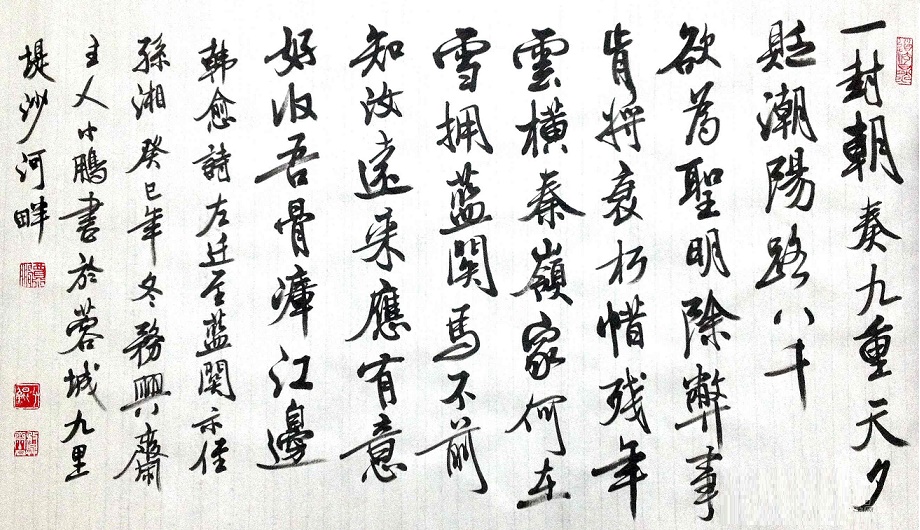 一封朝奏九重天夕
貶潮陽路八千
欲為聖明除弊事
肯將衰朽惜残年
雲橫秦嶺家何在
雪拥藍関馬不前
知汝遠來應有意
好收吾骨瘴江邊
韩愈詩左迁至藍関示侄
孫湘癸巳年冬務興齋
主人小鵬書於蓉城九里
堤沙河畔